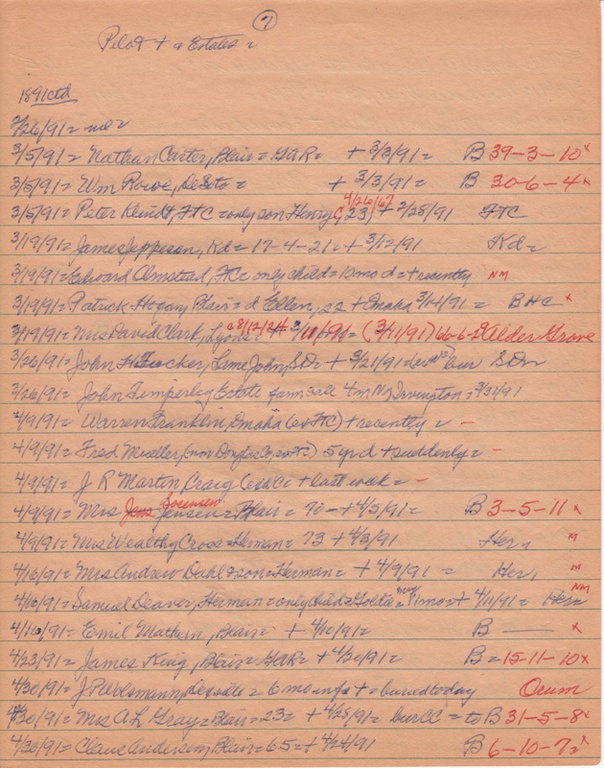 7
Pilot + a Estates =
1891 ctd
2/26/91 = no =
3/5/91 = Nathan Carter, Blair = GAR = + 3/3/91 = B 39-3-10 x
3/5/91 = Wm Rowe, DeSoto = + 3/3/91 = B 30-6-4 x
3/5/91 = Peter Kleindt, FTC = only son Henry, 23 4/26/67 + 2/28/91 FTC
3/19/91 = James Jeppeson, Kd = 17-4-21 = + 3/12/91 Kd =
3/19/91 = Edward Olmstead, FTC only child = 10 mo d = + recently NM
3/19/91 = Patrick Hogan, Blair = d Ellen, 22 + Omaha 3/14/91 = BHC x
3/19/91 = Mrs David Clark, Lyons = 8/12/24 + 3/11/91 = (3/11/91) 66-6-29 Alder Grove
3/26/91 = John H Tucker, Lime John, SD = + 3/21/91 = bur SDn
3/26/91 = John Timperley Estate farm sale 4 m N Irvington = 3/31/91
4/9/91 = Warren Franklin, Omaha (ex FTC) + recently = -
4/9/91 = Fred Mueller, (now Douglas Co, ex FTC) 5 yr d + suddenly = -
4/9/91 = J R Martin Craig + last week = -
4/9/91 = Mrs Jens Sorensen Jensen = Blair = 70 - + 4/5/91 = B 3-5-11 x
4/9/91 = Mrs Wealthy Cross = Herman = 73 + 4/3/91 Her, M
4/16/91 = Mrs Andrew Dahl = son = Herman = + 4/9/91 = Her, M
4/16/91 = Samuel Deaver, Herman = only child = Goldie = 11 mo = + 4/11/91 = Her NM
4/16/91 = Emil Mathern, Blair = + 4/10/91 = B — x
4/23/91 = James King, Blair = GAR = + 4/20/91 = B = 15-11-10 x
4/30/91 = J P Wolsmann, DeSoto = 6 mo inf s + = buried today Ocum
4/30/91 = Mrs A L Gray = Blair = 23 = + 4/28/91 = bur CC = to B 31-5-8 x
4/30/91 = Claus Andersen, Blair = 65 = + 4/24/91 B 6-10-7 x